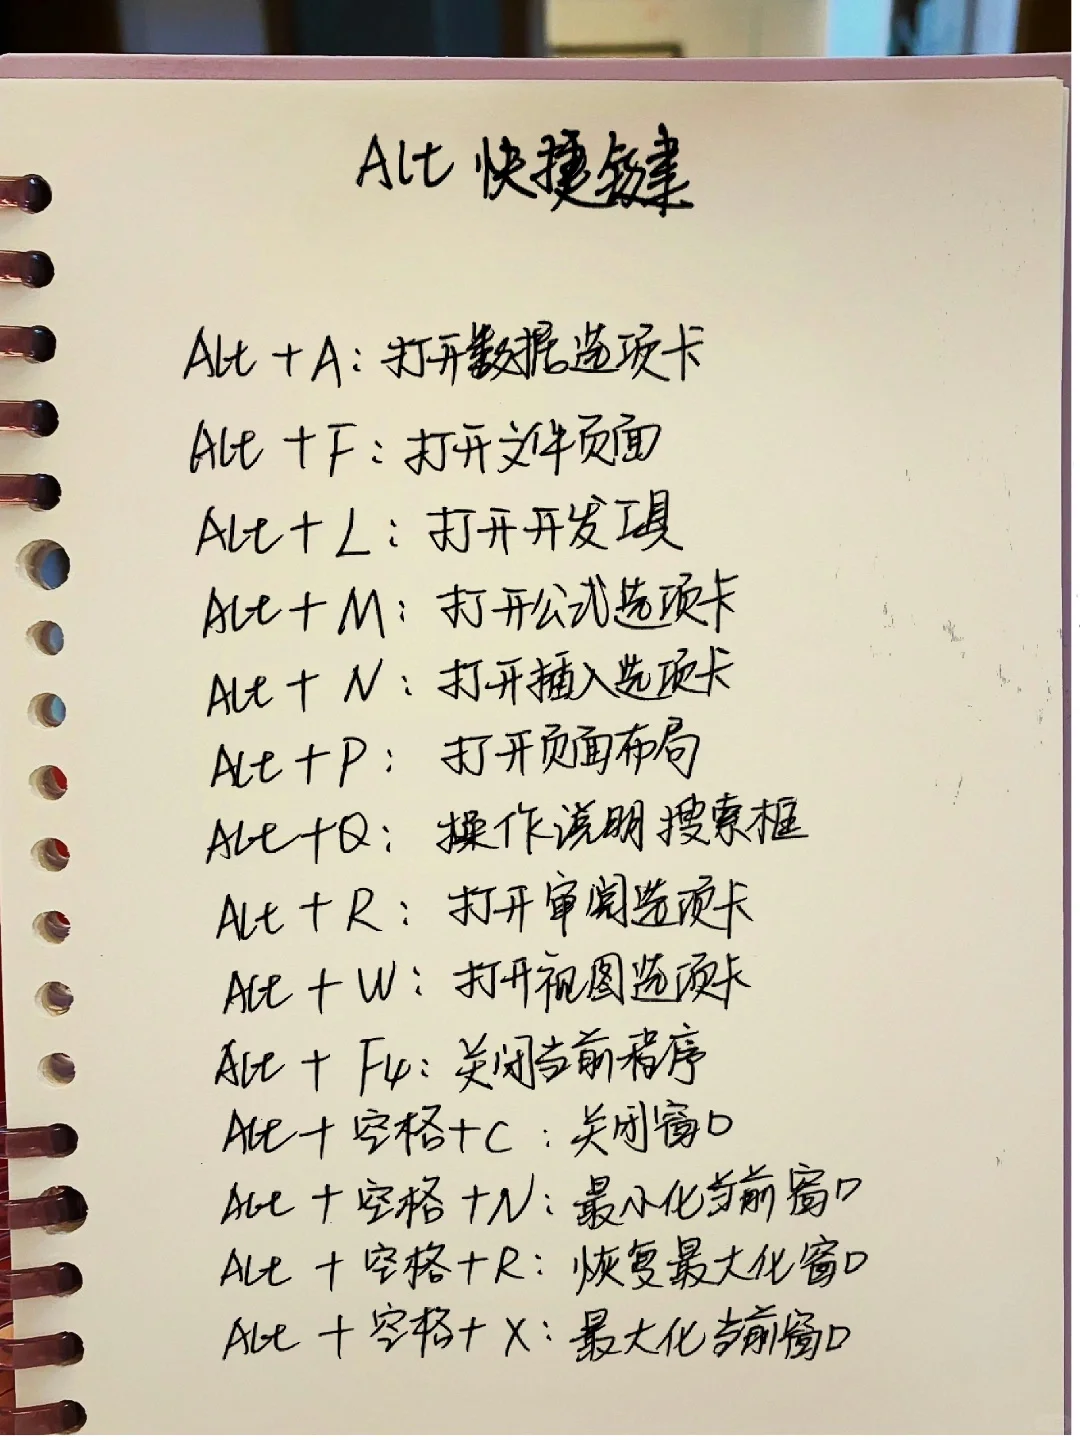 Alt 快捷键
Alt + A: 打开数据选项卡
Alt + F: 打开文件页面
Alt + L: 打开开发工具
Alt + M: 打开公式选项卡
Alt + N: 打开插入选项卡
Alt + P: 打开页面布局
Alt + Q: 操作说明搜索框
Alt + R: 打开审阅选项卡
Alt + W: 打开视图选项卡
Alt + F4: 关闭当前程序
Alt + 空格 + C: 关闭窗口
Alt + 空格 + N: 最小化当前窗口
Alt + 空格 + R: 恢复最大化窗口
Alt + 空格 + X: 最大化当前窗口